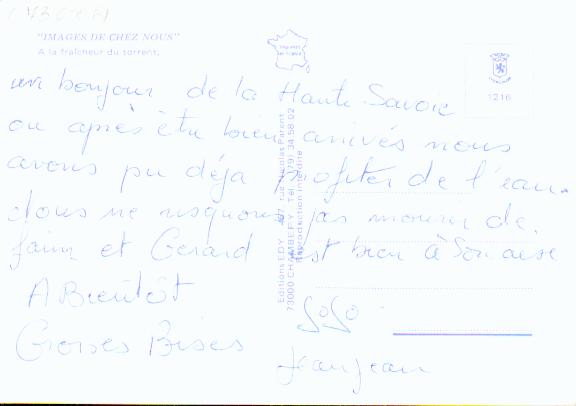 "IMAGES DE CHEZ NOUS"
A la fraîcheur du torrent.
1216
un bonjour de la Haute Savoie
ou après être bien arrivés nous
avons pu déjà profiter de l'eau.
Nous ne risquons pas mourir de
faim et Gérard est bien à son aise
A Bientôt
SoSo
Grosses Bises
JeanJean
Editions EDY - rue Nicolas Parent
73000 CHAMBERY - Tél. (79) 34.58.02
Reproduction interdite